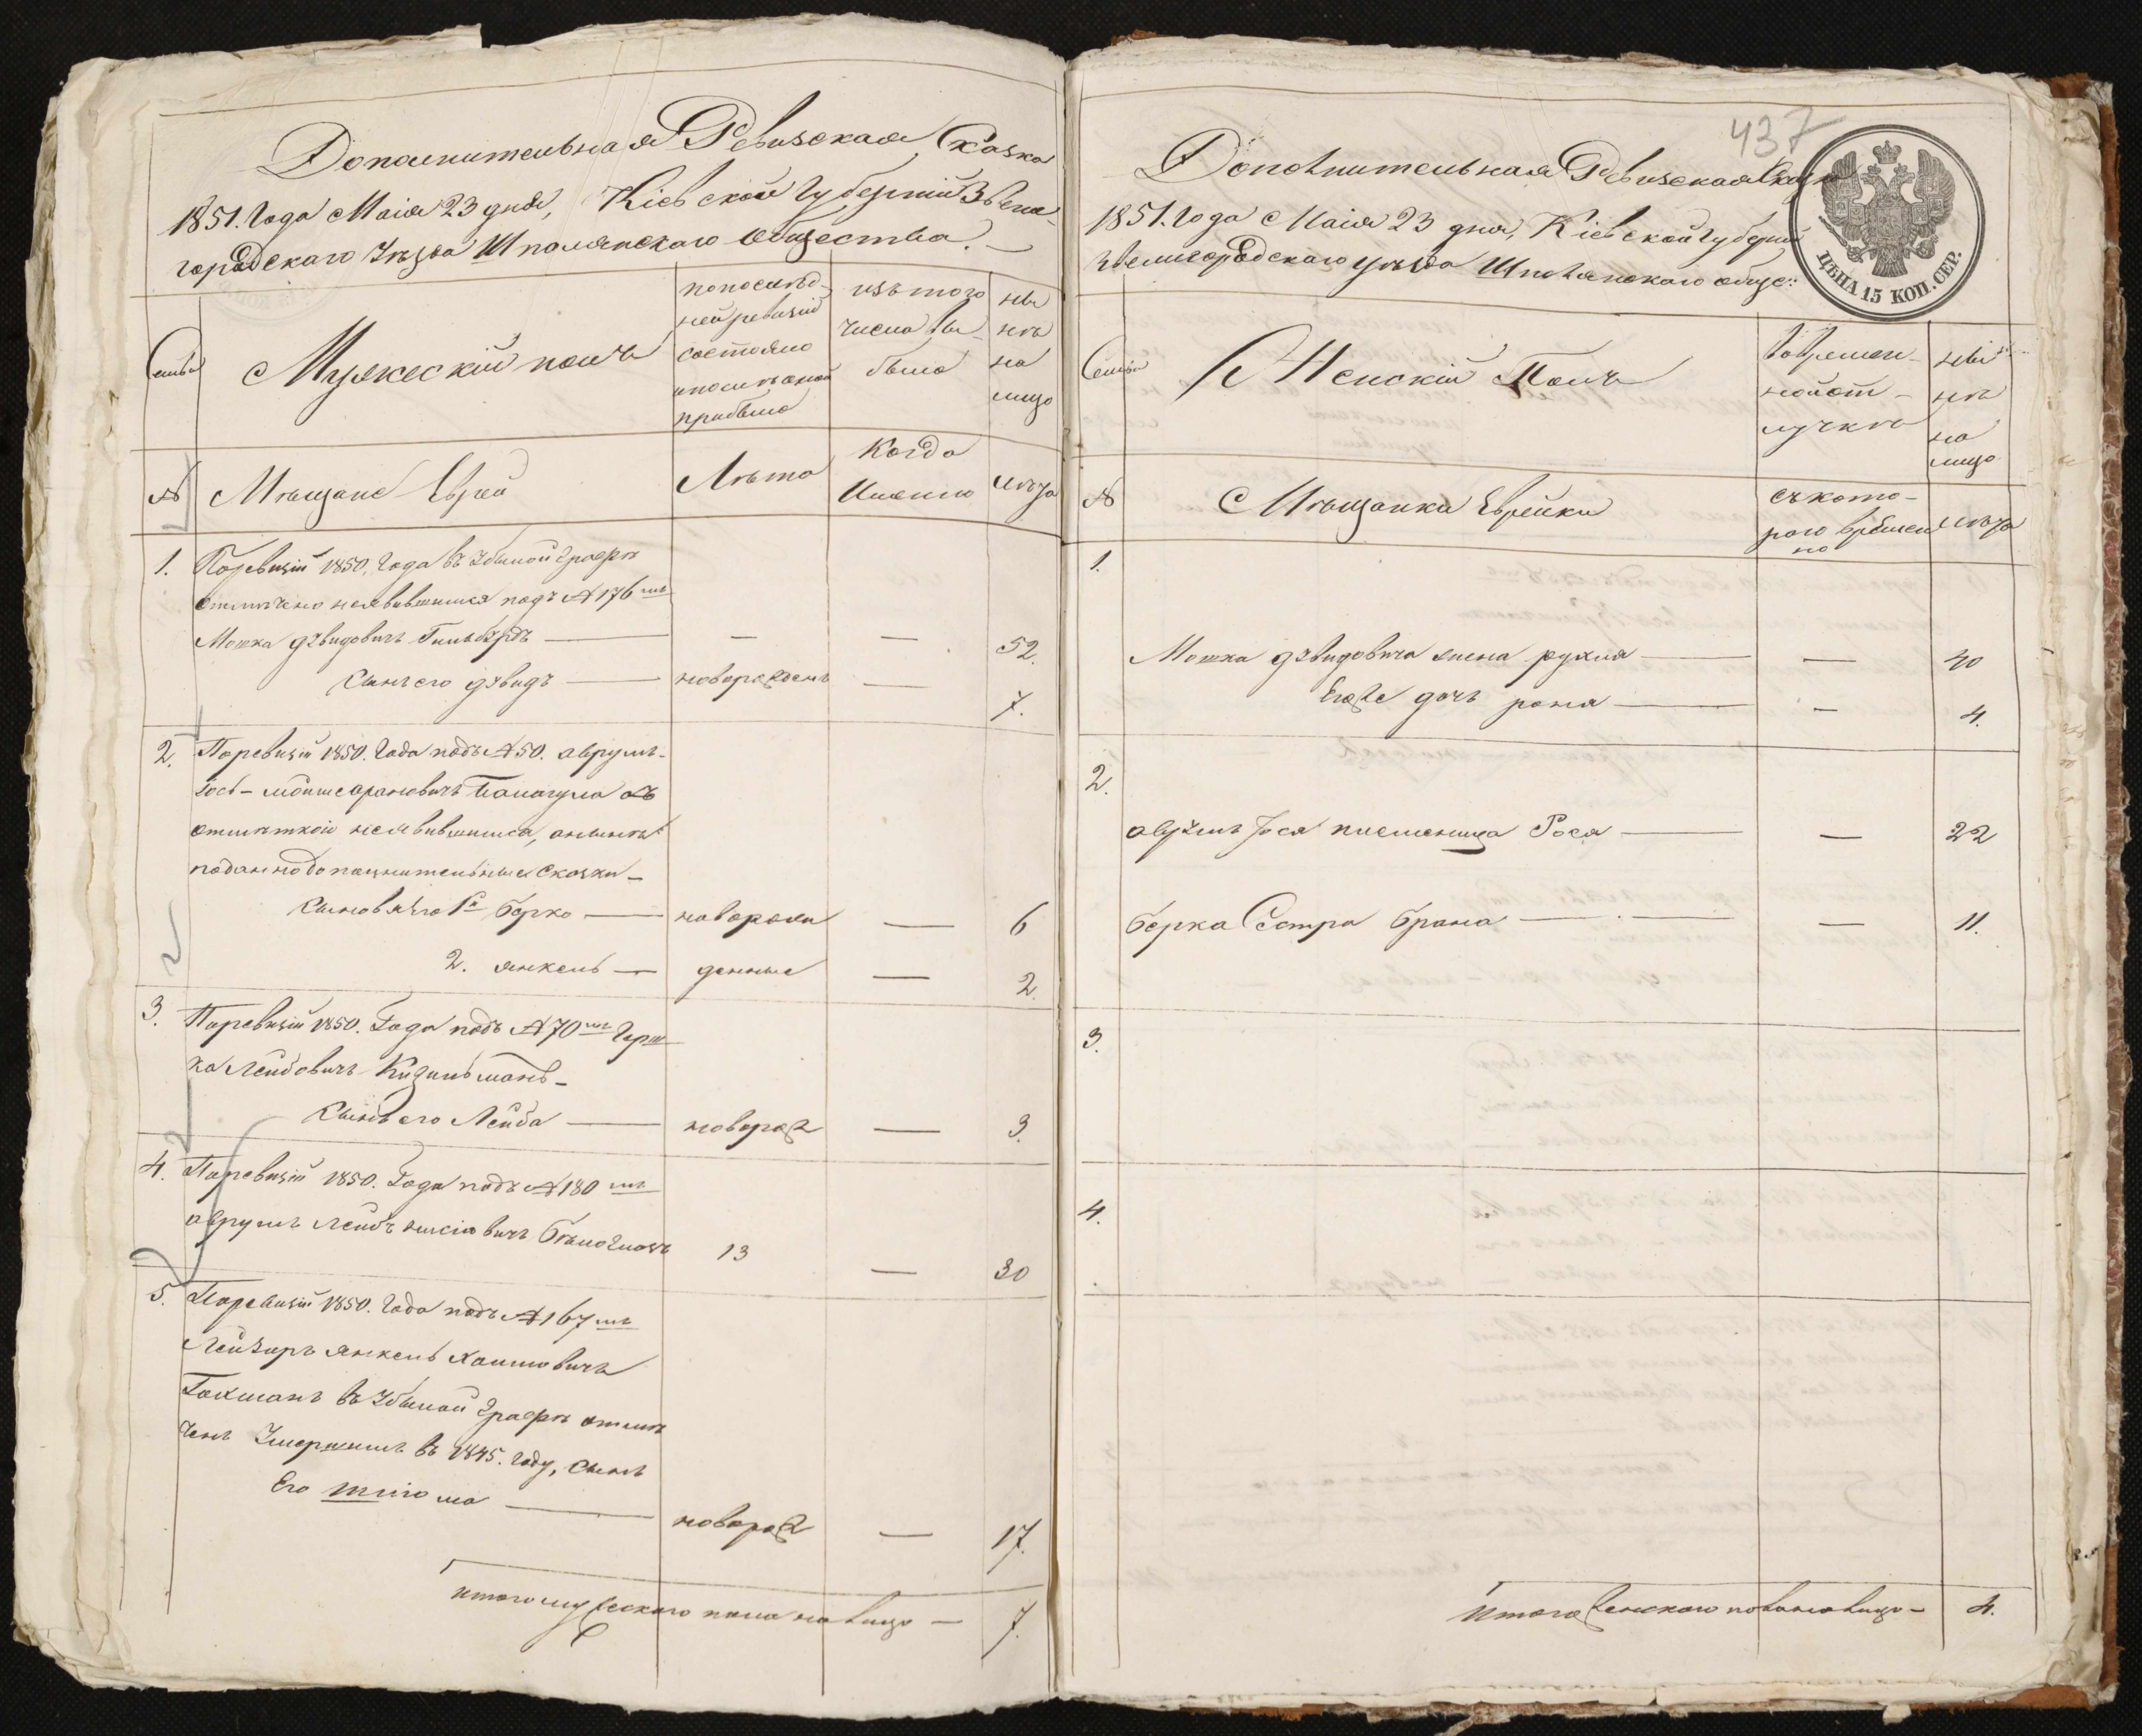 Дополнительная Ревизская Сказка
1851. Года Маія 23 дня, Кіевской Губерніи Звени-
городскаго Уѣзда Шполянскаго Общества.
Семьи
Мужескій полъ
попослѣд-
ней ревизіи
состояло
ипослѣ оной
прибыло
изъ того
числа вы-
было
ны
нѣ
на
лицо
№
Мѣщане Евреи
Лѣта
Когда
Именно
Лѣта
1. Поревизіи 1850. Года въ Убылой Графѣ
отмѣчено неявившимся подъ № 176 мъ
Мошка Дувидовичъ Гольбурдъ — — — 52.
Сынъ его Дувидъ — новорожденъ — 7.
2. Поревизіи 1850. Года подъ № 50. Аврумъ-
Іось-Мошке Ароновичъ
отмѣткой неявившимся, анынѣ
поданно дополнительныя Сказки-
Сыновя его 1й Берко — новорож — 6
2. Янкель — денные — 2.
3. Поревизіи 1850. Года подъ № 70 мъ Герш
ка Лейбовичъ Кизильманъ-
Сынъ его Лейба — новорож — 3.
4. Поревизіи 1850. Года подъ № 180 мъ
Аврумъ Лейбъ Билоглазъ 13 — 30
5. Поревизіи 1850. Года подъ № 167 мъ
Лейзыръ Янкель Хаимовичъ
Гохманъ въ Убылой Графѣ отмѣ
ченъ Умершимъ въ 1845. Году, Сынъ
Его Шліома — новорож — 17.
итого мужескаго пола на лицо — 7.
437
Дополнительная Ревизская Сказка
1851. Года Маія 23 дня, Кіевской Губерніи
Звенигородскаго уѣзда Шполянскаго общес:
ЦѢНА 15 КОП. СЕР.
Семьи
Женскій Полъ
Вовремен-
ной от-
лучкѣ
ны
нѣ
на
лицо
№
Мѣщанки Еврейки
съ кото-
раго времени
Лѣта
1.
Мошка Дувидовича жена Рухля — — 40
Егоже дочь Роня — — 4.
2.
Аврумъ Іося племеница Рося — — 22
Берка Сестра Брана — — 11.
3.
4.
итого женскаго пола налицо — 4.